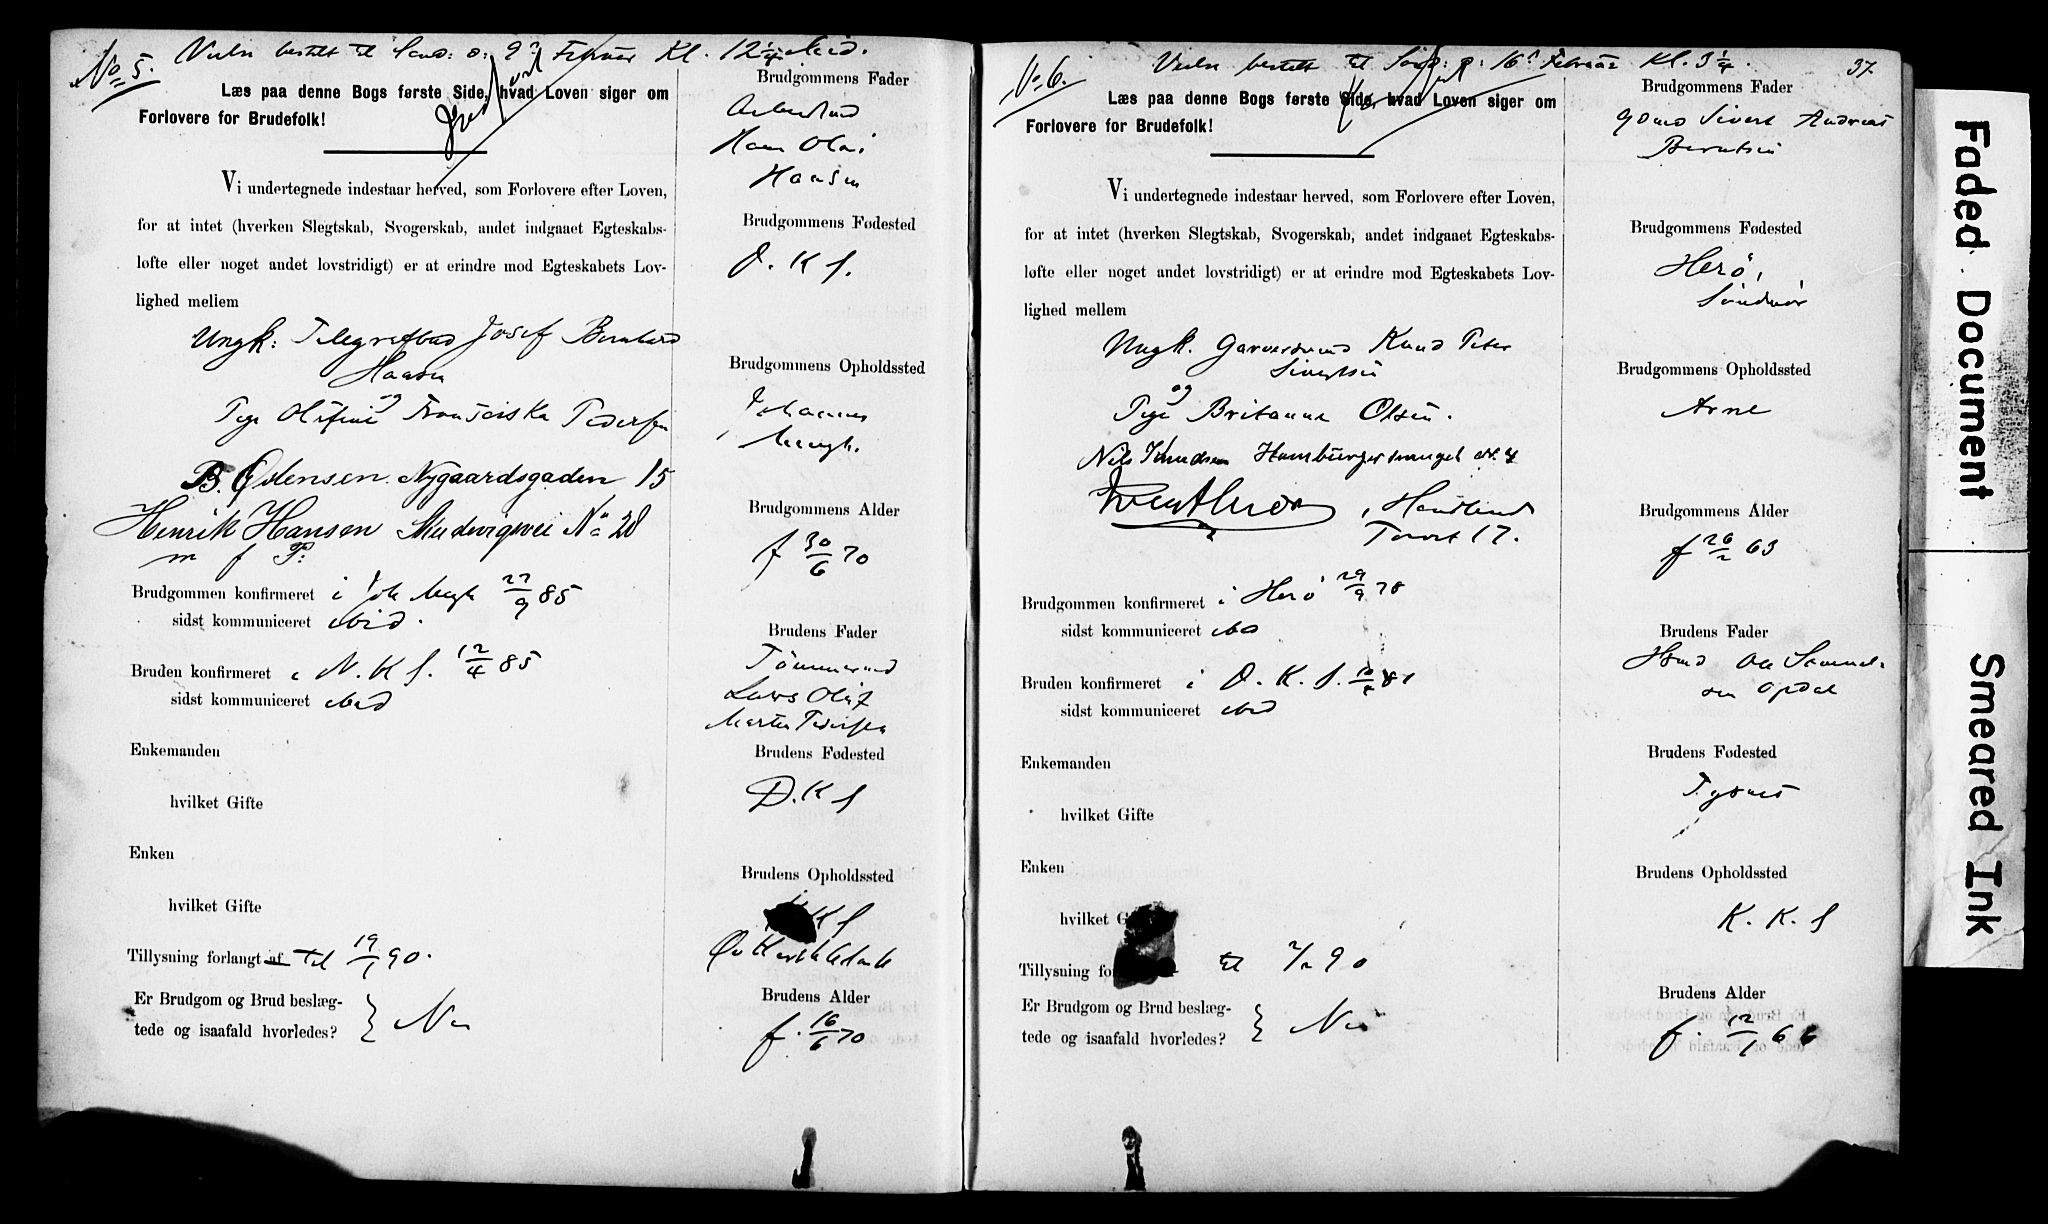 No 5. Vielse bestilt til Sønd: d: 9 Februar Kl. 12 1/4 Mid.
Læs paa denne Bogs første Side, hvad Loven siger om
Forlovere for Brudefolk!
Viet
Vi undertegnede indestaar herved, som Forlovere efter Loven,
for at intet (hverken Slegtskab, Svogerskab, andet indgaaet Egteskabs-
løfte eller noget andet lovstridigt) er at erindre mod Egteskabets Lov-
lighed mellem
Ungk: Telegrafbud Josef Bernhard
Hansen
og
Pige Olefine Fransciska Pedersen
B. Østensen. Nygaardsgaden 15
Henrik Hansen No 28
m f P:
Brudgommen konfirmeret i Joh Mngh 27/9 85
sidst kommuniceret ibid.
Bruden konfirmeret i N. K S. 12/4 85
sidst kommuniceret ibid
Enkemanden
hvilket Gifte
Enken
hvilket Gifte
Tillysning forlangt af til 19/1 90.
Er Brudgom og Brud beslæg-
tede og isaafald hvorledes? } Nei
Brudgommens Fader
Arbeidsmd
Hans Olai
Hansen
Brudgommens Fødested
D. K S.
Brudgommens Opholdssted
Johannes
Mengh.
Brudgommens Alder
f 30/6 70
Brudens Fader
Tømmermd
Lars Olaf
Martin Pedersen
Brudens Fødested
D. K S
Brudens Opholdssted
K S
Brudens Alder
f. 16/6 70
37.
No 6. Vielse bestilt til Sønd: d: 16 Februar Kl. 3 1/4.
Læs paa denne Bogs første Side, hvad Loven siger om
Forlovere for Brudefolk!
Vi undertegnede indestaar herved, som Forlovere efter Loven,
for at intet (hverken Slegtskab, Svogerskab, andet indgaaet Egteskabs-
løfte eller noget andet lovstridigt) er at erindre mod Egteskabets Lov-
lighed mellem
Ungk. Garversvend Knud Peter
Sivertsen
og
Pige Britanna Olsen.
Nils Knudsen Hamburgersmuget No 4
, Handlende
Torvet 17.
Brudgommen konfirmeret i Herø 29/9 78
sidst kommuniceret ibd
Bruden konfirmeret i D. K. S. 81
sidst kommuniceret ibid
Enkemanden
hvilket Gifte
Enken
hvilket
Tillysning til 2/2 90
Er Brudgom og Brud beslæg-
tede og isaafald hvorledes? } Nei
Brudgommens Fader
Gbmd Sivert Andreas
Berntsen
Brudgommens Fødested
Herø,
Søndmør
Brudgommens Opholdssted
Arne
Brudgommens Alder
f 26/2 63
Brudens Fader
Hsmd Ole Samuel-
sen Opdal
Brudens Fødested
Tysnes
Brudens Opholdssted
K. K. S
Brudens Alder
f. 12/1 66
Faded Document
Smeared Ink